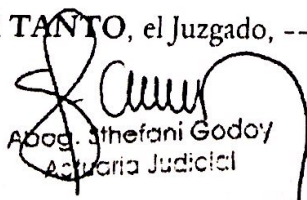 TANTO, el Juzgado, --
Abog. Sthefani Godoy
Actuaria Judicial